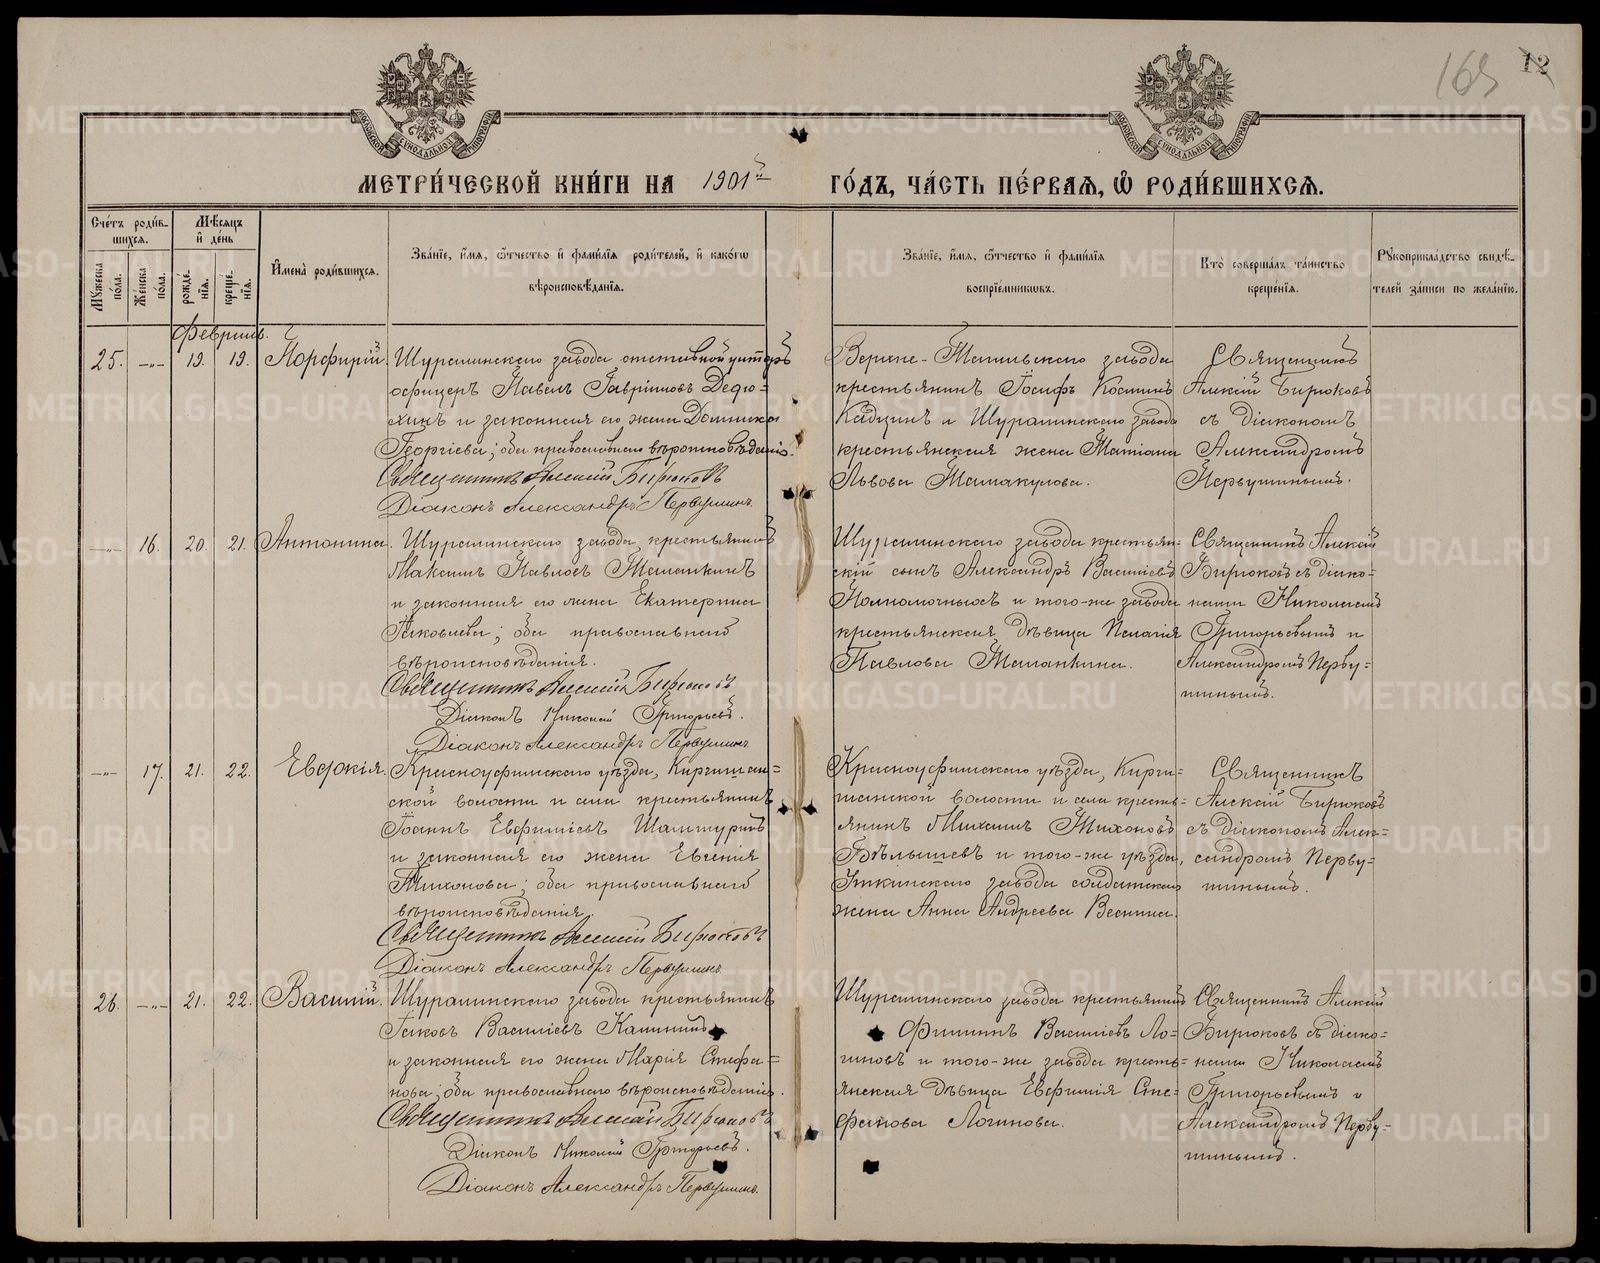 165
12
МОСКОВСКОЙ СУНОДАЛЬНОЙ ТИПОГРАФІИ
МОСКОВСКОЙ СУНОДАЛЬНОЙ ТИПОГРАФІИ
МЕТРИ́ЧЕСКОЙ КНИ́ГИ НА 1901й ГО́ДЪ, ЧА́СТЬ ПЕ́РВАѦ, Ѡ҆ РОДИ́ВШИХСѦ.
Сче́тъ роди́в-
шихся.
Мѣ́сяцъ
и҆ де́нь
Мꙋ́жеска по́ла.
Же́нска по́ла.
рожде́-нїѧ.
креще́-нїѧ.
И҆мена̀ роди́вшихся.
Зва́нїе, и҆́мѧ, ѻ҆́тчество и҆ фами́лїѧ роди́телей, и҆ како́гѡ
вѣроисповѣ́данїѧ.
Зва́нїе, и҆́мѧ, ѻ҆́тчество и҆ фами́лїѧ
воспрїе́мникѡвъ.
Кто̀ соверша́лъ та́инство
креще́нїѧ.
Рꙋкоприкла́дство свидѣ́-
телей за́писи по жела́нїю.
Февраль.
25. -"- 19. 19. Порфирій.
Шуралинскаго завода отставной унтеръ
офицеръ Павелъ Гавріиловъ Дедю=
хинъ и законная его жена Домника
Георгіева; оба православнаго вѣроисповѣданія.
Священникъ Алексій Бирюковъ
Діаконъ Александръ Первушинъ.
Верхне-Тагильскаго завода
крестьянинъ Іосифъ Косминъ
и Шуралинскаго завода
крестьянская жена Татіана
Львова Тамакулова.
Священникъ
Алексій Бирюковъ
съ діакономъ
Александромъ
Первушинымъ.
-"- 16. 20. 21. Антонина.
Шуралинскаго завода крестьянинъ
Максимъ Павловъ Таланкинъ
и законная его жена Екатерина
Іаковлева; оба православнаго
вѣроисповѣданія.
Священникъ Алексій Бирюковъ
Діаконъ Николай Григорьевъ.
Діаконъ Александръ Первушинъ
Шуралинскаго завода крестьян-
скій сынъ Александръ Васильевъ
Полномочныхъ и того-же завода
крестьянская дѣвица Пелагія
Павлова Таланкина.
Священникъ Алексій
Бирюковъ съ діако=
нами Николаемъ
Григорьевымъ и
Александромъ Перву=
шинымъ.
-"- 17. 21. 22. Евдокія.
Красноуфимскаго уѣзда, Киргишан=
ской волости и села крестьянинъ
Іоаннъ Евфиміевъ Шалтуринъ
и законная его жена Евгенія
Тихонова; оба православнаго
вѣроисповѣданія.
Священникъ Алексій Бирюковъ
Діаконъ Александръ Первушинъ
Красноуфимскаго уѣзда, Кирги=
шанской волости и села кресть=
янинъ Михаилъ Тихоновъ
Бѣлышевъ и того-же уѣзда,
Уткинскаго завода солдатская
жена Анна Андреева Веснина.
Священникъ
Алексій Бирюковъ
съ діакономъ Алек=
сандромъ Перву=
шинымъ.
26. -"- 21. 22. Василій.
Шуралинскаго завода крестьянинъ
Іаковъ Василіевъ Калининъ
и законная его жена Марія Стефа=
нова; оба православнаго вѣроисповѣданія.
Священникъ Алексій Бирюковъ
Діаконъ Николай Григорьевъ.
Діаконъ Александръ Первушинъ.
Шуралинскаго завода крестьянинъ
Филиппъ Василіевъ Ло-
гиновъ и того-же завода кресть=
янская дѣвица Евфимія Сте=
фанова Логинова.
Священникъ Алексій
Бирюковъ съ діако=
нами Николаемъ
Григорьевымъ и
Александромъ Перву=
шинымъ.
METRIKI.GASO-URAL.RU